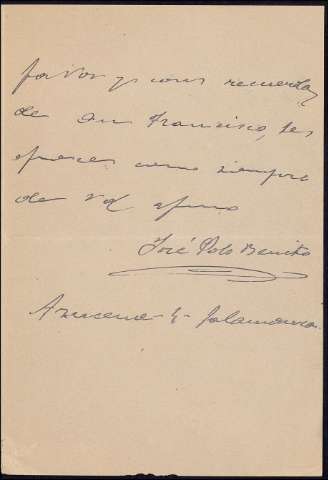 favor y con recuerdos
de Dn Francisco, se
ofrece como siempre
de Vd afmo
José Polo Benito
Azucena 4- Salamanca.